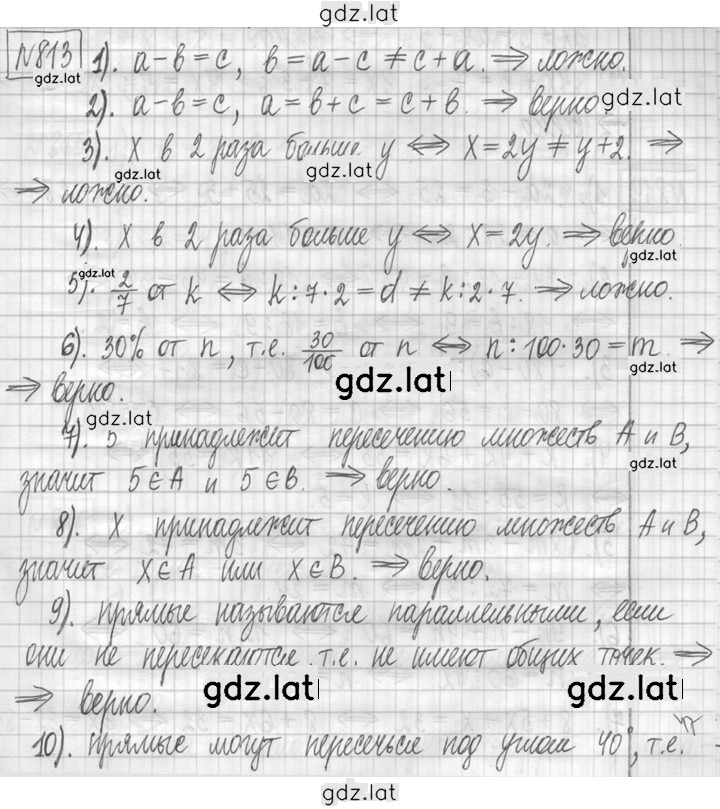 gdz.lat
№813 1). a-b=c, b=a-c≠c+a. ⇒ ложно.
gdz.lat
2). a-b=c, a=b+c=c+b. ⇒ верно. gdz.lat
3). x в 2 раза больше y ⇔ x=2y≠y+2. ⇒
gdz.lat gdz.lat
⇒ ложно.
4). x в 2 раза больше y ⇔ x=2y. ⇒ верно.
gdz.lat gdz.lat
5). 2/7 от k ⇔ k:7·2=d≠k:2·7. ⇒ ложно.
6). 30% от n, т.е. 30/100 от n ⇔ n:100·30=m. ⇒
gdz.lat gdz.lat
⇒ верно.
gdz.lat
7). 5 принадлежит пересечению множеств A и B,
gdz.lat
значит 5∈A и 5∈B. ⇒ верно.
8). x принадлежит пересечению множеств A и B,
значит x∈A или x∈B. ⇒ верно.
9). прямые называются параллельными, если
они не пересекаются т.е. не имеют общих точек. ⇒
⇒ верно. gdz.lat gdz.lat
10). прямые могут пересечься под углом 40°, т.е.
gdz.lat